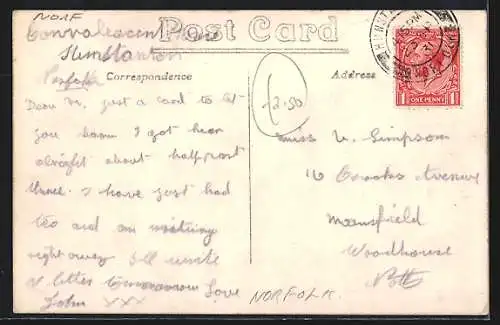 NORF
Convalescent
Hunstanton
Norfolk
Post Card
Correspondence
Address
HUNSTANTON
ONE PENNY
£2.50
Dear Vi, just a card to let
you know I got hear
alright about halfpast
three. I have just had
tea and am writing
right away I'll write
a letter tomorrow Love
John XXX
Miss V. Simpson
16 Crooks Avenue
Mansfield
Woodhouse
Notts
NORFOLK.